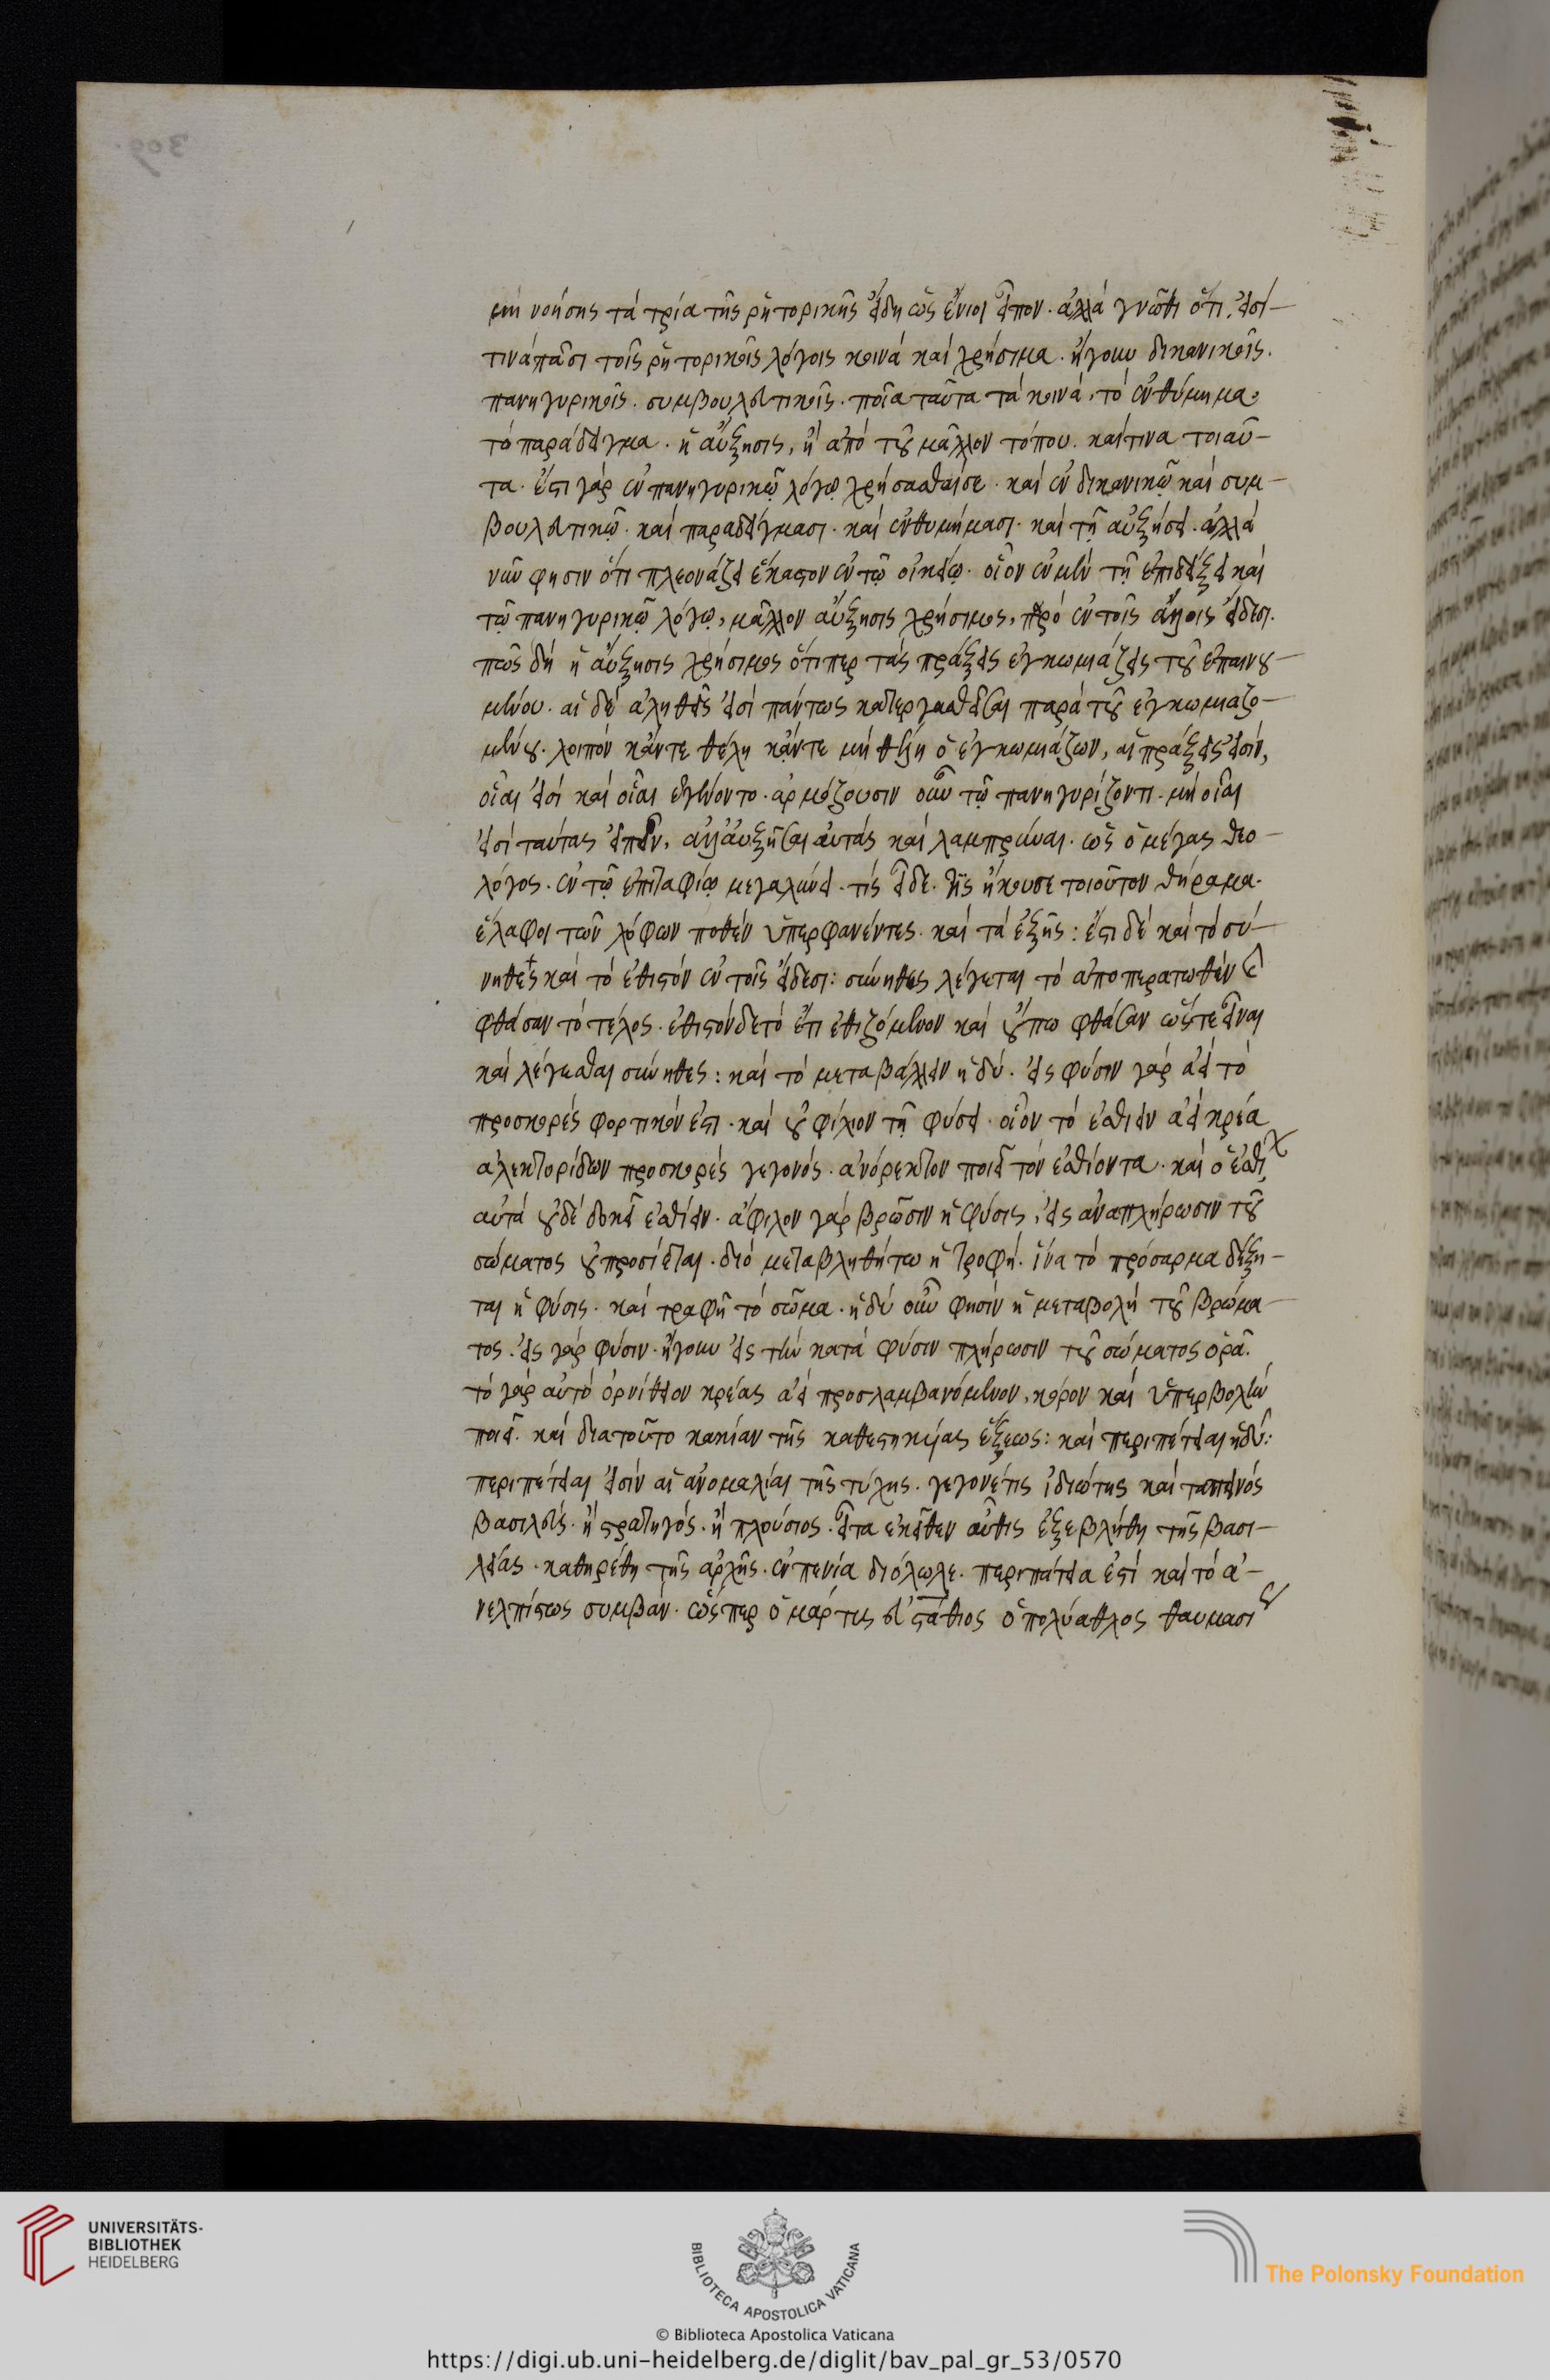 309
μὴ νοήσῃς τὰ τρία τῆς ῥητορικῆς εἴδη ὥς ἔνιοι εἶπον. ἀλλὰ γνῶθι ὅτι, εἰσί
τινὰ πᾶσι τοῖς ῥητορικοῖς λόγοις κοινὰ καὶ χρήσιμα. ἤγουν δικανικοῖς.
πανηγυρικοῖς. συμβουλευτικοῖς. ποῖα ταῦτα τὰ κοινά, τὸ ἐνθύμημα,
τὸ παράδειγμα. ἡ αὔξησις, ἢ ἀπὸ τοῦ μᾶλλον τόπου. καί τινα τοιαῦ-
τα. ἔστι γὰρ ἐν πανηγυρικῷ λόγῳ χρήσασθαί σε. καὶ ἐν δικανικῷ καὶ συμ-
βουλευτικῷ. καὶ παραδείγμασι. καὶ ἐνθυμήμασι. καὶ τῇ αὐξήσει. ἀλλὰ
νῦν φησιν ὅτι πλεονάζει ἕκαστον ἐν τῷ οἰκείῳ. οἷον ἐν μὲν τῇ ἐπιδείξει καὶ
τῷ πανηγυρικῷ λόγῳ, μᾶλλον αὔξησις χρήσιμος, ἐν τοῖς ἄλλοις εἴδεσι.
πῶς δὴ ἡ αὔξησις χρήσιμος ὅτιπερ τὰς πράξεις ἐγκωμιάζεις τοῦ ἐπαινου-
μένου. αἱ δὲ ἀληθεῖς εἰσὶ πάντως κατεργασθεῖσαι παρὰ τοῦ ἐγκωμιαζο-
μένου. λοιπὸν κἄντε θέλῃ κἄντε μὴ θέλῃ ὁ ἐγκωμιάζων, αἱ πράξεις εἰσίν,
οἷαι εἰσὶ καὶ οἷαι ἐγένοντο. ἁρμόζουσιν οὖν τῷ πανηγυρίζοντι. μὴ οἷαι
εἰσὶ ταύτας εἰπεῖν, ἀλλ' αὐξῆσαι αὐτὰς καὶ λαμπρῦναι. ὡς ὁ μέγας θεο-
λόγος. ἐν τῷ ἐπιταφίῳ μεγαλύνει. τίς εἶδε. τίς ἤκουσε τοιοῦτον θήραμα.
ἔλαφοι τῶν λόφων ποθὲν ὑπερφανέντες. καὶ τὰ ἑξῆς: ἔτι δὲ καὶ τὸ σύ-
νηθες καὶ τὸ ἐθιστὸν ἐν τοῖς εἴδεσι: σύνηθες λέγεται τὸ ἀποπερατωθὲν καὶ
φθάσαν τὸ τέλος. ἐθιστὸν δὲ τὸ ἔτι ἐθιζόμενον καὶ οὔπω φθάσαν ὥστε εἶναι
καὶ λέγεσθαι σύνηθες: καὶ τὸ μεταβάλλειν ἡδύ. εἰς φύσιν γὰρ ἀεὶ τὸ
προσκορές φορτικόν ἐστι. καὶ οὐ φίλιον τῇ φύσει. οἷον τὸ ἐσθίειν ἀεὶ κρέα
ἀλεκτορίδων προσκορὲς γεγονός. ἀνόρεκτον ποιεῖ τὸν ἐσθίοντα. καὶ ὁ ἐσθί
αὐτὰ οὐδὲ δοκεῖ ἐσθίειν. ἄφιλον γὰρ βρῶσιν ἡ φύσις, εἰς ἀναπλήρωσιν τοῦ
σώματος οὐ προσίεται. διὸ μεταβληθήτω ἡ τροφή. ἵνα τὸ πρόσαρμα δέξη-
ται ἡ φύσις. καὶ τραφῇ τὸ σῶμα. ἡδὺ οὖν φησὶν ἡ μεταβολὴ τοῦ βρώμα-
τος. εἰς γὰρ φύσιν. ἤγουν εἰς τὴν κατὰ φύσιν πλήρωσιν τοῦ σώματος ὁρᾷ.
τὸ γὰρ αὐτὸ ὀρνίθειον κρέας ἀεὶ προσλαμβανόμενον, κόρον καὶ ὑπερβολὴν
ποιεῖ. καὶ διατοῦτο κακίαν τῆς καθεστηκυίας ἕξεως: καὶ περιπέτειαι ἡδύ:
περιπέτειαι εἰσὶν αἱ ἀνομαλίαι τῆς τύχης. γέγονέ τις ἰδιώτης καὶ ταπεινὸς
βασιλεύς. ἢ στρατηγός. ἢ πλούσιος. εἶτα ἐκεῖθεν αὖθις ἐξεβλήθη τῆς βασι-
λείας. καθηρέθη τῆς ἀρχῆς. ἐν πενίᾳ διόλωλε. περιπέτεια ἐστὶ καὶ τὸ ἀ-
νελπίστως συμβάν. ὥσπερ ὁ μάρτυς εὐστάθιος ὁ πολύαθλος θαυμασι
UNIVERSITÄTS-
BIBLIOTHEK
HEIDELBERG
BIBLIOTECA APOSTOLICA VATICANA
The Polonsky Foundation
© Biblioteca Apostolica Vaticana
https://digi.ub.uni-heidelberg.de/diglit/bav_pal_gr_53/0570